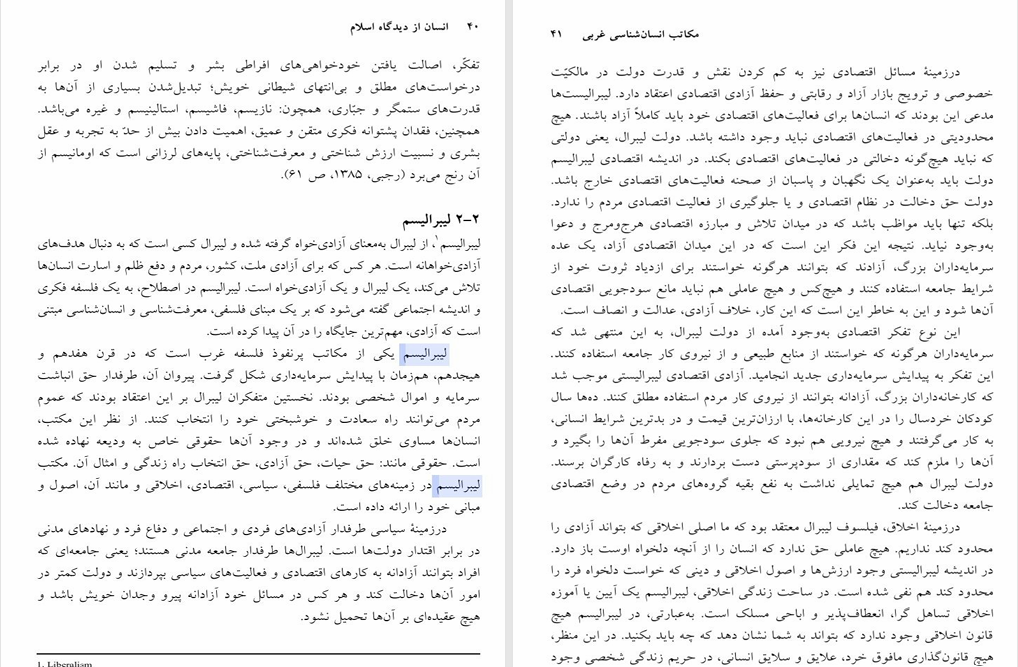 ۴۰ انسان از دیدگاه اسلام
تفکّر، اصالت یافتن خودخواهی‌های افراطی بشر و تسلیم شدن او در برابر
درخواست‌های مطلق و بی‌انتهای شیطانی خویش؛ تبدیل‌شدن بسیاری از آن‌ها به
قدرت‌های ستمگر و جبّاری، همچون: نازیسم، فاشیسم، استالینیسم و غیره می‌باشد.
همچنین، فقدان پشتوانه فکری متقن و عمیق، اهمیت دادن بیش از حدّ به تجربه و عقل
بشری و نسبیت ارزش شناختی و معرفت‌شناختی، پایه‌های لرزانی است که اومانیسم از
آن رنج می‌برد (رجبی، ۱۳۸۵، ص ۶۱).
۲-۲ لیبرالیسم
لیبرالیسم۱، از لیبرال به‌معنای آزادی‌خواه گرفته شده و لیبرال کسی است که به دنبال هدف‌های
آزادی‌خواهانه است. هر کس که برای آزادی ملت، کشور، مردم و دفع ظلم و اسارت انسان‌ها
تلاش می‌کند، یک لیبرال و یک آزادی‌خواه است. لیبرالیسم در اصطلاح، به یک فلسفه فکری
و اندیشه اجتماعی گفته می‌شود که بر یک مبنای فلسفی، معرفت‌شناسی و انسان‌شناسی مبتنی
است که آزادی، مهم‌ترین جایگاه را در آن پیدا کرده است.
لیبرالیسم یکی از مکاتب پرنفوذ فلسفه غرب است که در قرن هفدهم و
هیجدهم، هم‌زمان با پیدایش سرمایه‌داری شکل گرفت. پیروان آن، طرفدار حق انباشت
سرمایه و اموال شخصی بودند. نخستین متفکران لیبرال بر این اعتقاد بودند که عموم
مردم می‌توانند راه سعادت و خوشبختی خود را انتخاب کنند. از نظر این مکتب،
انسان‌ها مساوی خلق شده‌اند و در وجود آن‌ها حقوقی خاص به ودیعه نهاده شده
است. حقوقی مانند: حق حیات، حق آزادی، حق انتخاب راه زندگی و امثال آن. مکتب
لیبرالیسم در زمینه‌های مختلف فلسفی، سیاسی، اقتصادی، اخلاقی و مانند آن، اصول و
مبانی خود را ارائه داده است.
درزمینهٔ سیاسی طرفدار آزادی‌های فردی و اجتماعی و دفاع فرد و نهادهای مدنی
در برابر اقتدار دولت‌ها است. لیبرال‌ها طرفدار جامعه مدنی هستند؛ یعنی جامعه‌ای که
افراد بتوانند آزادانه به کارهای اقتصادی و فعالیت‌های سیاسی بپردازند و دولت کمتر در
امور آن‌ها دخالت کند و هر کس در مسائل خود آزادانه پیرو وجدان خویش باشد و
هیچ عقیده‌ای بر آن‌ها تحمیل نشود.
1. Liberalism
مکاتب انسان‌شناسی غربی ۴۱
درزمینهٔ مسائل اقتصادی نیز به کم کردن نقش و قدرت دولت در مالکیّت
خصوصی و ترویج بازار آزاد و رقابتی و حفظ آزادی اقتصادی اعتقاد دارد. لیبرالیست‌ها
مدعی این بودند که انسان‌ها برای فعالیت‌های اقتصادی خود باید کاملاً آزاد باشند. هیچ
محدودیتی در فعالیت‌های اقتصادی نباید وجود داشته باشد. دولت لیبرال، یعنی دولتی
که نباید هیچ‌گونه دخالتی در فعالیت‌های اقتصادی بکند. در اندیشه اقتصادی لیبرالیسم
دولت باید به‌عنوان یک نگهبان و پاسبان از صحنه فعالیت‌های اقتصادی خارج باشد.
دولت حق دخالت در نظام اقتصادی و یا جلوگیری از فعالیت اقتصادی مردم را ندارد.
بلکه تنها باید مواظب باشد که در میدان تلاش و مبارزه اقتصادی هرج‌ومرج و دعوا
به‌وجود نیاید. نتیجه این فکر این است که در این میدان اقتصادی آزاد، یک عده
سرمایه‌داران بزرگ، آزادند که بتوانند هرگونه خواستند برای ازدیاد ثروت خود از
شرایط جامعه استفاده کنند و هیچ‌کس و هیچ عاملی هم نباید مانع سودجویی اقتصادی
آن‌ها شود و این به خاطر این است که این کار، خلاف آزادی، عدالت و انصاف است.
این نوع تفکر اقتصادی به‌وجود آمده از دولت لیبرال، به این منتهی شد که
سرمایه‌داران هرگونه که خواستند از منابع طبیعی و از نیروی کار جامعه استفاده کنند.
این تفکر به پیدایش سرمایه‌داری جدید انجامید. آزادی اقتصادی لیبرالیستی موجب شد
که کارخانه‌داران بزرگ، آزادانه بتوانند از نیروی کار مردم استفاده مطلق کنند. ده‌ها سال
کودکان خردسال را در این کارخانه‌ها، با ارزان‌ترین قیمت و در بدترین شرایط انسانی،
به کار می‌گرفتند و هیچ نیرویی هم نبود که جلوی سودجویی مفرط آن‌ها را بگیرد و
آن‌ها را ملزم کند که مقداری از سودپرستی دست بردارند و به رفاه کارگران برسند.
دولت لیبرال هم هیچ تمایلی نداشت به نفع بقیه گروه‌های مردم در وضع اقتصادی
جامعه دخالت کند.
درزمینهٔ اخلاق، فیلسوف لیبرال معتقد بود که ما اصلی اخلاقی که بتواند آزادی را
محدود کند نداریم. هیچ عاملی حق ندارد که انسان را از آنچه دلخواه اوست باز دارد.
در اندیشه لیبرالیستی وجود ارزش‌ها و اصول اخلاقی و دینی که خواست دلخواه فرد را
محدود کند هم نفی شده است. در ساحت زندگی اخلاقی، لیبرالیسم یک آیین یا آموزه
اخلاقی تساهل گرا، انعطاف‌پذیر و اباحی مسلک است. به‌عبارتی، در لیبرالیسم هیچ
قانون اخلاقی وجود ندارد که بتواند به شما نشان دهد که چه باید بکنید. در این منظر،
هیچ قانون‌گذاری مافوق خرد، علایق و سلایق انسانی، در حریم زندگی شخصی وجود